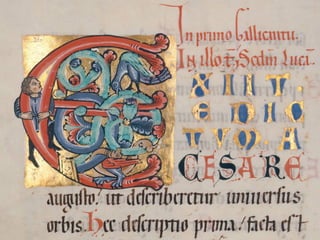 In primo Gallicantu.
In illo t. Secdm Lucā.
EXIIT.
EDIC
TUM A
CESARE
augusto / ut describeretur universus
orbis. Hec descriptio prima / facta est